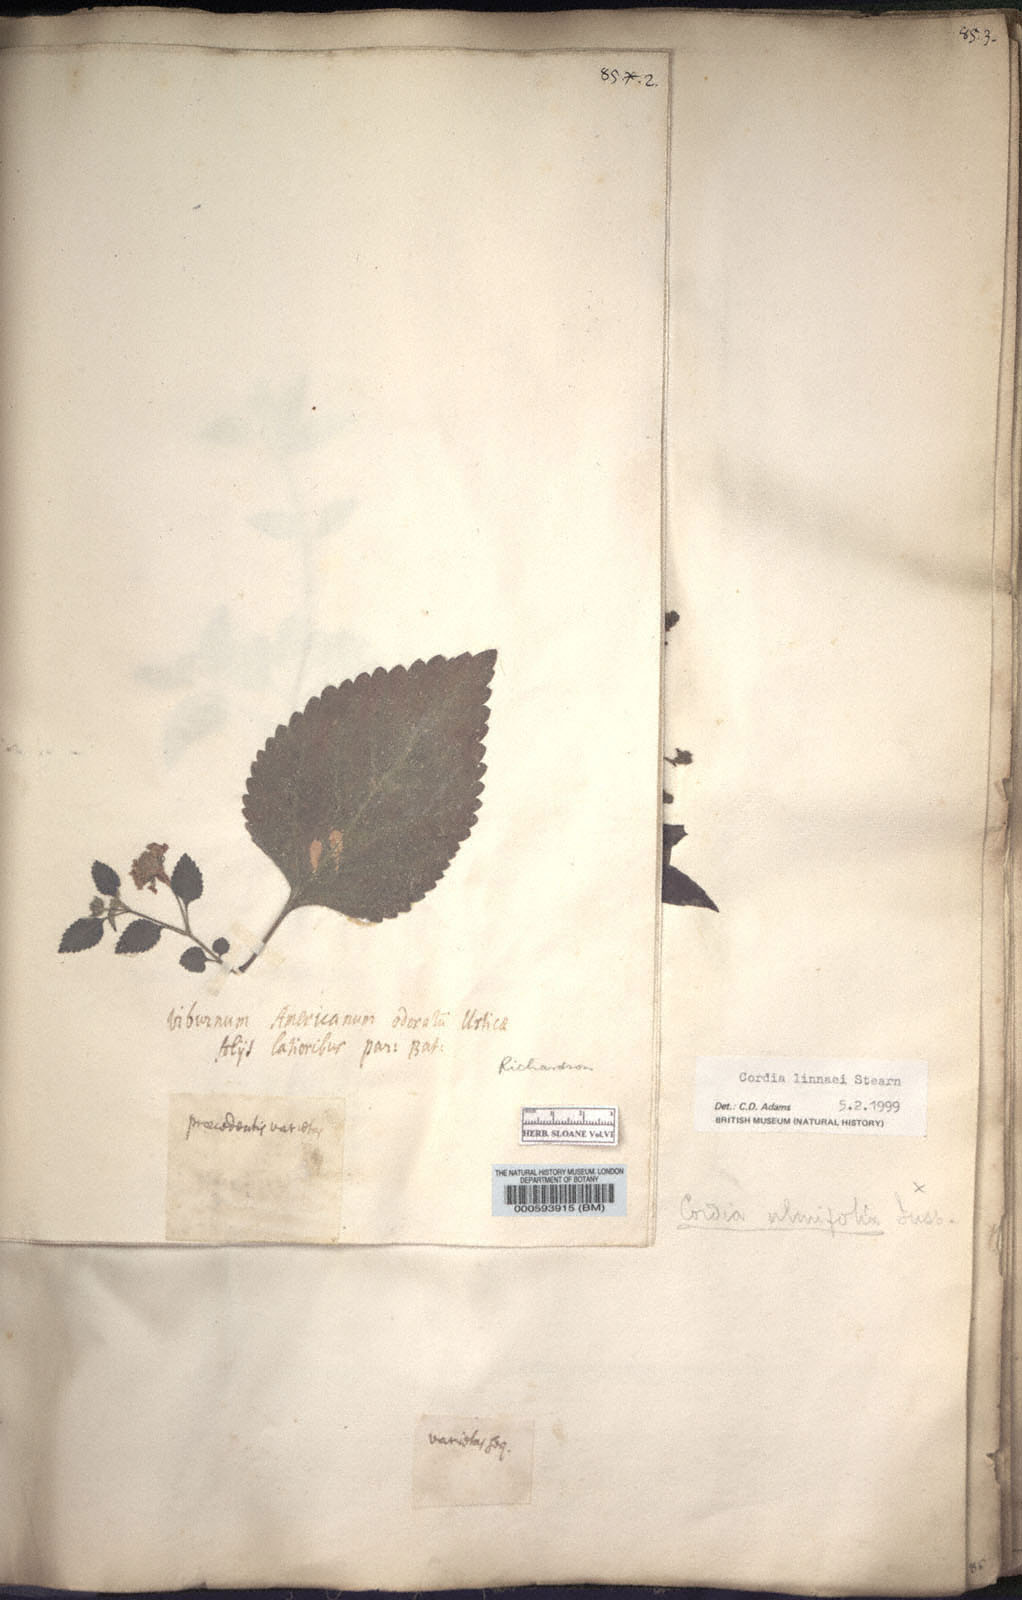 85.3.
85.*.2.
Viburnum Americanum odoratū Urticæ
folijs latioribus par: Bat:
Richardson
præcedentis varietas
HERB. SLOANE Vol.VI
THE NATURAL HISTORY MUSEUM, LONDON
DEPARTMENT OF BOTANY
000593915 (BM)
Cordia linnaei Stearn
Det.: C.D. Adams 5.2.1999
BRITISH MUSEUM (NATURAL HISTORY)
Cordia ulmifolia Juss.
varietas seq.